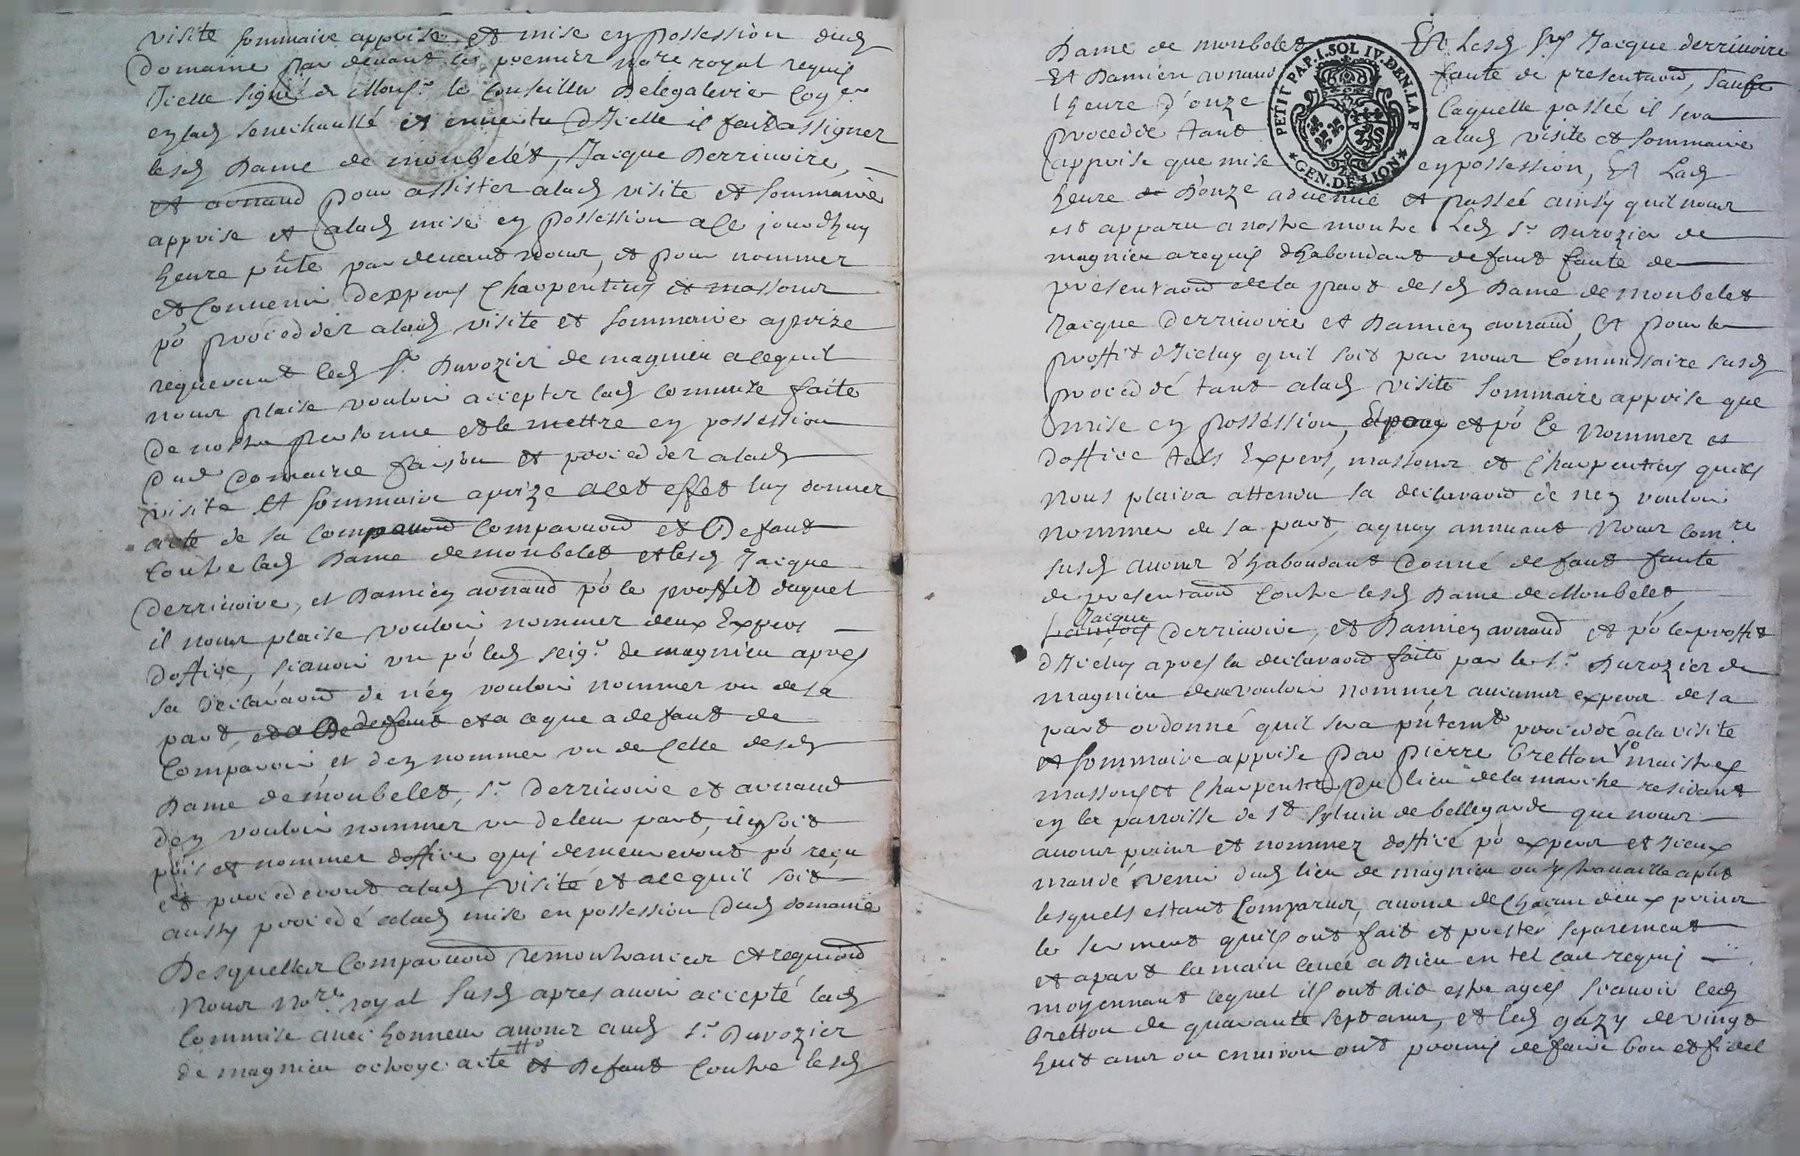 visite sommaire apprise et mise en possession dud
domaine par devant le premier no.re royal requis
Icelle signé de Mons.r le Conseiller Delegalerie
en lad senechaussé et en vertu d'Icelle il fait assigner
lesd Dame de monbelet, Jacque Derriuoire,
et arnaud pour assister alad visite et sommaire
apprise et alad mise en possession a ce jourdhuy
heure pnte par devant nous, et pour nommer
et Convenir dexpers Charpentiers et massons
po procedder alad visite et sommaire aprize
requerant led Sr. Durozier de magnieu a cequil
nous plaise vouloir accepter lad commise faite
de nostre personne et le mettre en possession
dud Domaine faisou et procedder alad
visite et sommaire aprize a cet effet luy donner
acte de sa comparaoñ et Defaut
Contre lad Dame de monbelet et lesd Jacque
Derriuoire, et Damien arnaud po le proffit duquel
il nous plaise vouloir nommer deux Expers
doffice, scavoir un po led seigr. de magnieu apres
sa declaraoñ de n'en vouloir nommer un de sa
part, et a ce que a defaut de
Comparoir et den nommer un de Celle desd
Dame de monbelet, Sr. Derriuoire et arnaud
den vouloir nommer un de leur part, il y soit
pris et nommer doffice qui demeureront po reçu
et procederont alad visite et a ce quil soit
aussy procedé alad mise en possession dud domaine
Desquelles Comparaoñ remontrances et requiaoñ
Nous No.re royal susd apres avoir accepté lad
Commise avec honneur avons aud Sr. Durozier
de magnieu octroyé acte et Defaut Contre lesd
Dame de monbelet Et Lesd Srs Jacque derriuoire
Et Damien arnaud faute de presentaoñ, sauf
lheure d'onze laquelle passée il sera
procedé tant alad visite et sommaire
apprise que mise en possession, Et Lad
heure d'onze advenue et passée ainsy quil nous
est apparu a nostre montre Led Sr. Durozier de
magnieu a requis d'habondant defaut faute de
presentaoñ de la part desd Dame de monbelet
Jacque Derriuoire et Damien arnaud, Et pour le
proffit d'Iceluy quil soit par nous Commissaire susd
procedé tant alad visite sommaire apprise que
mise en possession, et po ce nommer et
doffice tels Expers, massons et Charpentiers quils
nous plaira attendu sa declaraoñ de n'en vouloir
nommer de sa part, a quoy annuant Nous Com.re
susd avons d'habondant donné defaut faute
de presentaoñ Contre lesd Dame de Monbelet,
Jacque
Derriuoire, et Damien arnaud et po le proffit
d'Iceluy apres la declaraoñ faite par le Sr. Durozier de
magnieu de ne vouloir nommer aucuns expers de sa
part ordonné quil sera pntemt procedé a la visite
et sommaire apprise par pierre Bretton maistres
massons et Charpentier du lieu de la marche residant
en la parroisse de St Sylvin de bellegarde que nous
avons prins et nommez doffice po expers et Iceux
mandé venir dud lieu de magnieu ou ils travaille apnt
lesquels estant Comparus, avons de Chacun deux prins
le serment quils ont fait et prester separement
et apart la main levée a Dieu en tel cas requis
moyennant lequel ils ont dit estre agés scavoir led
Bretton de quarante sept ans, et led gazy de vingt
huit ans ou environ ont promis de faire bon et fidel
PETIT PAP. 1. SOL IV. DEN. LA F
GEN. DE LION